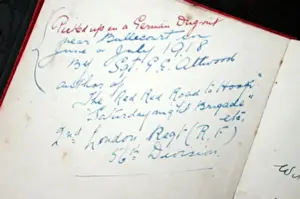 Picked up in a German Dugout
near Bullecourt in
June or July 1918
By Sgt. G.E. Attwood
author of
"The Red Red Road to Hooge"
"Saturday night Brigade"
etc.
2nd London Regt (R.F)
56th Division